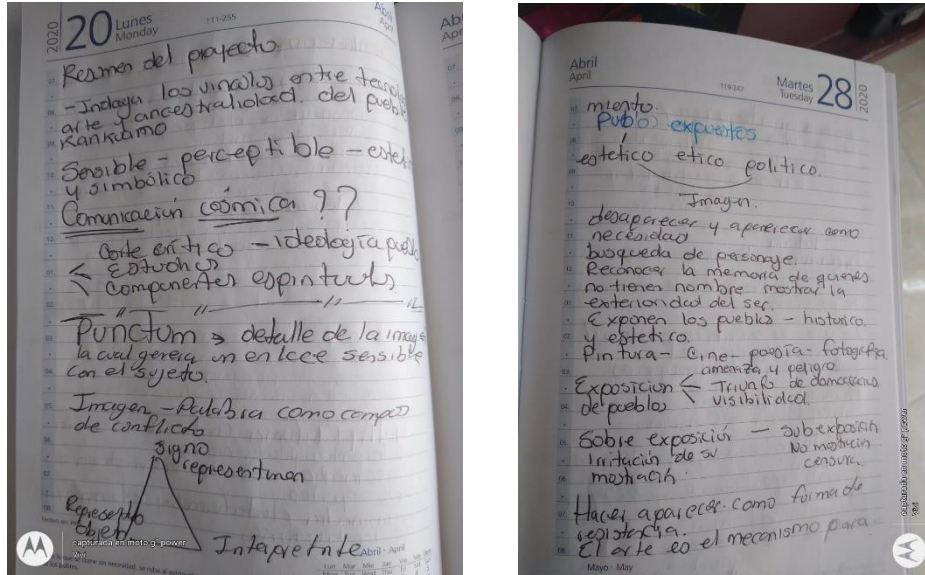 2020
20 Lunes
Monday
111-255
Abril
April
Resumen del proyecto.
- Indaga los vinculos entre tecnolo
arte y ancestralidad. del pueblo
Kankuamo
Sensible - perceptible - estet
y simbólico
Comunicación cósmica ??
Corte crítico - ideología pueblo
Estudios
Componentes espirituals
Punctum → detalle de la imagen
la cual genera un enlace sensible
con el sujeto.
Imagen - Palabra como campos
de conflicto
Signo
representamen
Representa
objeto
Interpretnte
Abril - April
capturada en moto g power
Vivi
Abril
April
Martes
Tuesday
28
2020
miento.
Publos expuestos
estetico etico politico.
Imagen.
desaparecer y aparecer como
necesidad
busqueda de personaje.
Reconocer la memoria de quienes
no tienen nombre mostrar la
exterioridad del ser.
Exponen los pueblos - historico
y estetico.
Pintura - Cine - poesía - fotografía
amenaza y peligro
Exposicion < Triunfo de democracias
de pueblos visibilidad.
Sobre exposición - subexposición
Irritación de su No mostración
mostración censura.
Hacer aparecer como forma de
resistencia.
El arte es el mecanismo para
Mayo - May
capturada en moto g power
Vivi